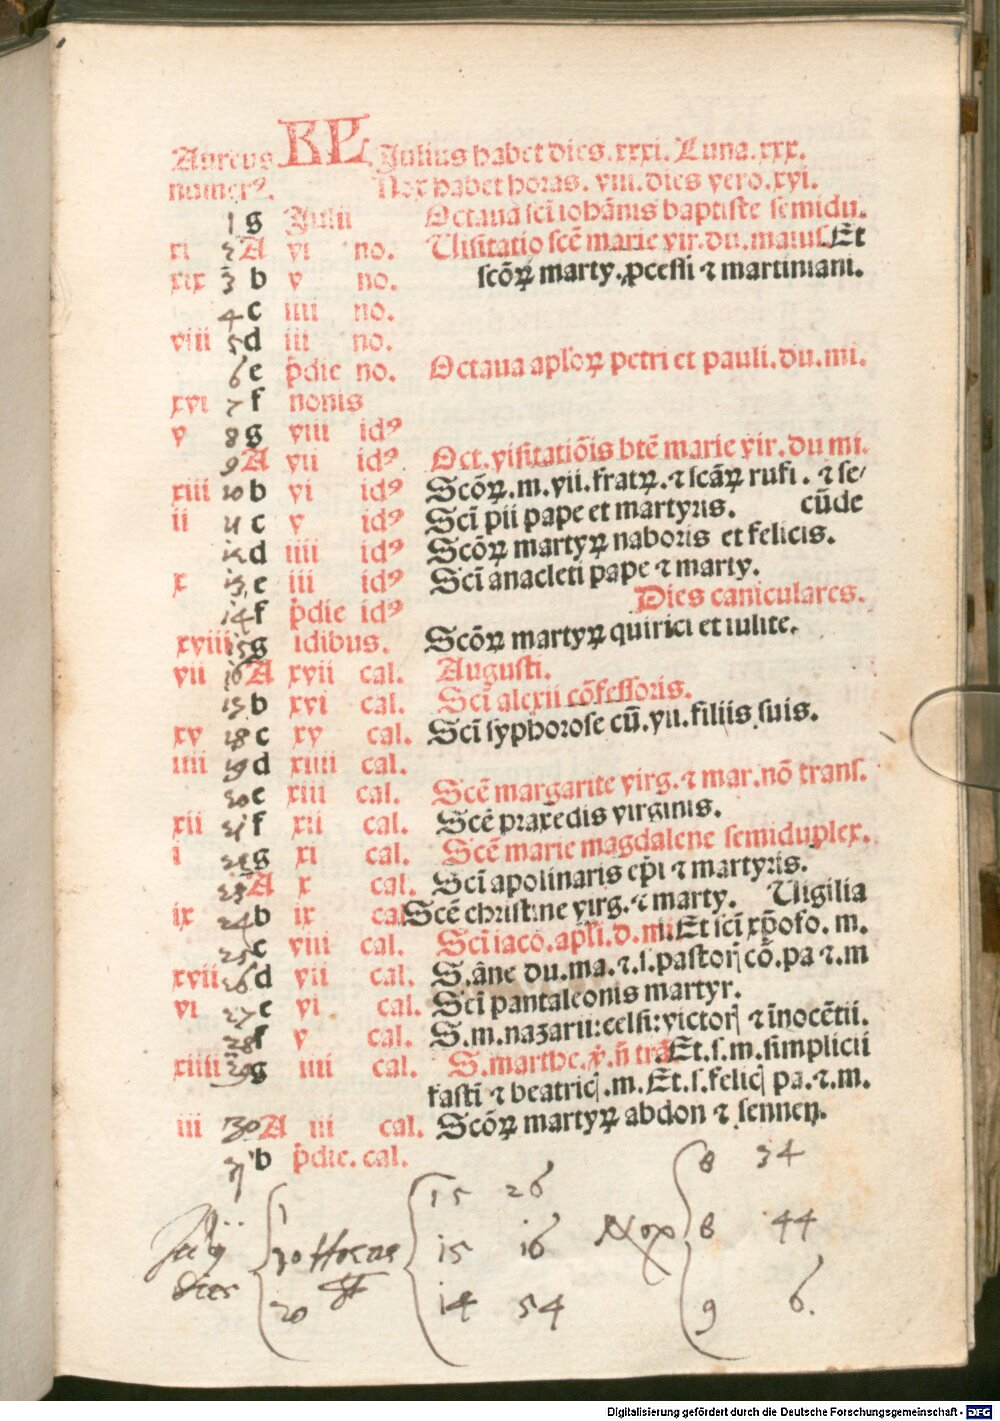 Aureus KL Julius habet dies.xxxi. Luna.xxx.
numerꝰ. Nox habet horas. viii. dies vero.xvi.
1 g Julii Octaua sci iohānis baptiste semidu.
xi 2 A vi no. Uisitatio scē marie vir.du.maius. Et
xix 3 b v no. scōꝝ marty.ꝓcessi ⁊ martiniani.
4 c iiii no.
viii 5 d iii no.
6 e p̄die no. Octaua apl'oꝝ petri et pauli.du.mi.
xvi 7 f nonis
v 8 g viii idꝰ
9 A vii idꝰ Oct.visitatiōis btē marie vir.du mi.
xiii 10 b vi idꝰ Scōꝝ.m.vii.fratꝝ.⁊ scāꝝ rufi. ⁊ se/
ii 11 c v idꝰ Sci pii pape et martyris. cūde
12 d iiii idꝰ Scōꝝ martyꝝ naboris et felicis.
x 13 e iii idꝰ Sci anacleti pape ⁊ marty.
Dies caniculares.
14 f p̄die idꝰ
xviii 15 g idibus. Scōꝝ martyꝝ quirici et iulite.
vii 16 A xvii cal. Augusti.
17 b xvi cal. Sci alexii cōfessoris.
xv 18 c xv cal. Sci syphorose cū.vii.filiis suis.
iiii 19 d xiiii cal.
20 e xiii cal. Scē margarite virg.⁊ mar.nō trans.
xii 21 f xii cal. Scē praxedis virginis.
i 22 g xi cal. Scē marie magdalene semiduplex.
23 A x cal. Sci apolinaris ep̄i ⁊ martyris.
ix 24 b ix cal. Scē christine virg.⁊ marty. Uigilia
25 c viii cal. Sci iaco.apl'i.d.mi. Et sci xp̄ofo. m.
xvii 26 d vii cal. S.āne du.ma.⁊.s.pastorꝭ cō.pa ⁊.m
vi 27 e vi cal. Sci pantaleonis martyr.
28 f v cal. S.m.nazarii:celsi:victorꝭ ⁊ īnocētii.
xiiii 29 g iiii cal. S.marthe.v̄.n̄ trā. Et.s.m.simplicii
fasti ⁊ beatricꝭ.m.Et.s.felicꝭ pa.⁊.m.
iii 30 A iii cal. Scōꝝ martyꝝ abdon ⁊ sennen.
31 b p̄die.cal.
1 15 26 8 34
Julij 10 Horae 15 16 Nox 8 44
dies 20 14 54 9 6.
Digitalisierung gefördert durch die Deutsche Forschungsgemeinschaft - DFG